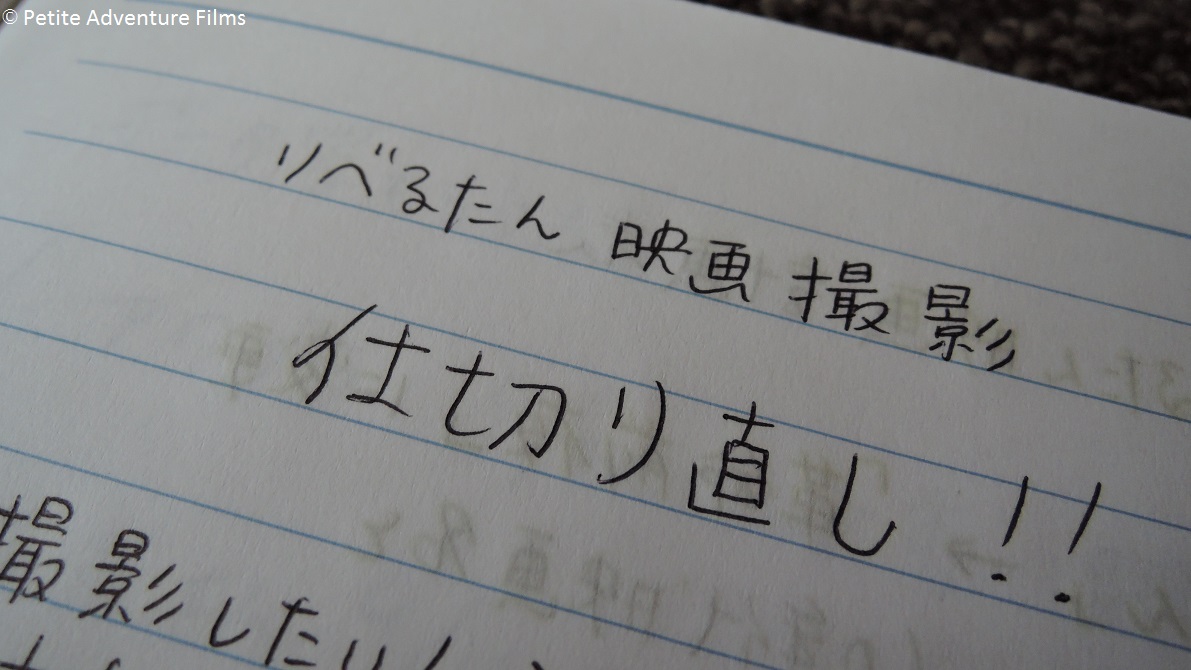 © Petite Adventure Films
リベるたん 映画撮影
仕切り直し!!
撮影したい